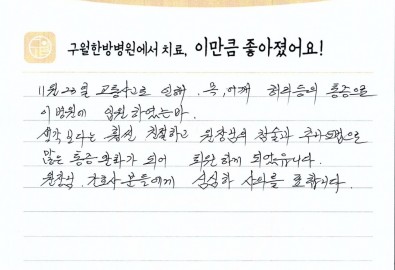 구월한방병원에서 치료, 이만큼 좋아졌어요!
11월 23일 교통사고로 인해, 목, 어깨 허리등의 통증으로
이 병원에 입원하였는바.
생각보다는 훨씬 친절하고 원장님의 침술과 추나요법으로
많은 통증완화가 되어 퇴원하게 되었읍니다.
원장님, 간호사분들에게 심심한 사의를 표합니다.